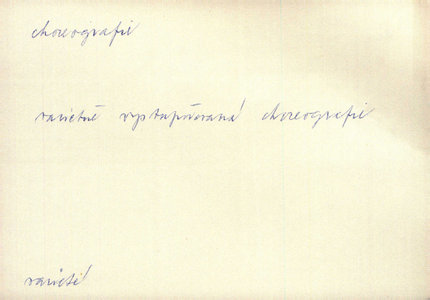 choreografie
varietně vystupňovaná choreografie
varieté